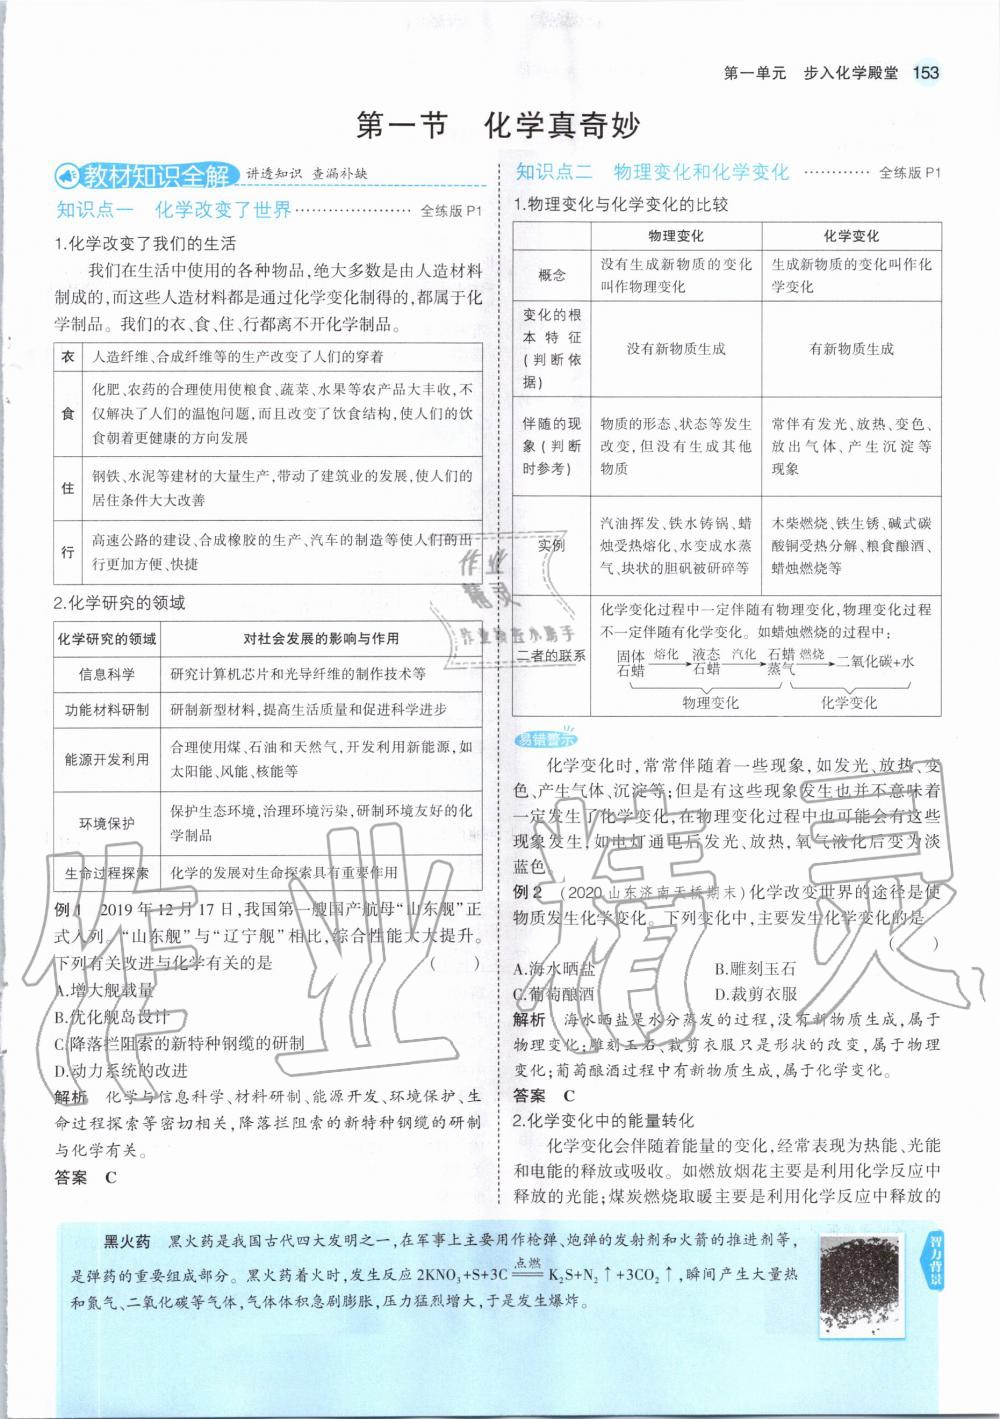 第一单元 步入化学殿堂 153
第一节 化学真奇妙
教材知识全解 讲透知识 查漏补缺
知识点一 化学改变了世界 ………………… 全练版P1
1.化学改变了我们的生活
我们在生活中使用的各种物品,绝大多数是由人造材料
制成的,而这些人造材料都是通过化学变化制得的,都属于化
学制品。我们的衣、食、住、行都离不开化学制品。
衣 人造纤维、合成纤维等的生产改变了人们的穿着
食 化肥、农药的合理使用使粮食、蔬菜、水果等农产品大丰收,不
仅解决了人们的温饱问题,而且改变了饮食结构,使人们的饮
食朝着更健康的方向发展
住 钢铁、水泥等建材的大量生产,带动了建筑业的发展,使人们的
居住条件大大改善
行 高速公路的建设、合成橡胶的生产、汽车的制造等使人们的出
行更加方便、快捷
2.化学研究的领域
化学研究的领域 对社会发展的影响与作用
信息科学 研究计算机芯片和光导纤维的制作技术等
功能材料研制 研制新型材料,提高生活质量和促进科学进步
能源开发利用 合理使用煤、石油和天然气,开发利用新能源,如
太阳能、风能、核能等
环境保护 保护生态环境,治理环境污染,研制环境友好的化
学制品
生命过程探索 化学的发展对生命探索具有重要作用
例1 2019年12月17日,我国第一艘国产航母“山东舰”正
式入列。“山东舰”与“辽宁舰”相比,综合性能大大提升。
下列有关改进与化学有关的是 ( )
A.增大舰载量
B.优化舰岛设计
C.降落拦阻索的新特种钢缆的研制
D.动力系统的改进
解析 化学与信息科学、材料研制、能源开发、环境保护、生
命过程探索等密切相关,降落拦阻索的新特种钢缆的研制
与化学有关。
答案 C
知识点二 物理变化和化学变化 ………… 全练版P1
1.物理变化与化学变化的比较
物理变化 化学变化
概念 没有生成新物质的变化 生成新物质的变化叫作化
叫作物理变化 学变化
变化的根
本特征
(判断依
据) 没有新物质生成 有新物质生成
伴随的现 物质的形态、状态等发生 常伴有发光、放热、变色、
象(判断 改变,但没有生成其他 放出气体、产生沉淀等
时参考) 物质 现象
实例 汽油挥发、铁水铸锅、蜡 木柴燃烧、铁生锈、碱式碳
烛受热熔化、水变成水蒸 酸铜受热分解、粮食酿酒、
气、块状的胆矾被研碎等 蜡烛燃烧等
二者的联系 化学变化过程中一定伴随有物理变化,物理变化过程
不一定伴随有化学变化。如蜡烛燃烧的过程中:
固体石蜡 熔化→ 液态石蜡 汽化→ 石蜡蒸气 燃烧→ 二氧化碳+水
物理变化 化学变化
易错警示
化学变化时,常常伴随着一些现象,如发光、放热、变
色、产生气体、沉淀等;但是有这些现象发生也并不意味着
一定发生了化学变化,在物理变化过程中也可能会有这些
现象发生,如电灯通电后发光、放热,氧气液化后变为淡
蓝色。
例2 (2020山东济南天桥期末)化学改变世界的途径是使
物质发生化学变化。下列变化中,主要发生化学变化的是
( )
A.海水晒盐 B.雕刻玉石
C.葡萄酿酒 D.裁剪衣服
解析 海水晒盐是水分蒸发的过程,没有新物质生成,属于
物理变化;雕刻玉石、裁剪衣服只是形状的改变,属于物理
变化;葡萄酿酒过程中有新物质生成,属于化学变化。
答案 C
2.化学变化中的能量转化
化学变化会伴随着能量的变化,经常表现为热能、光能
和电能的释放或吸收。如燃放烟花主要是利用化学反应中
释放的光能;煤炭燃烧取暖主要是利用化学反应中释放的
黑火药 黑火药是我国古代四大发明之一,在军事上主要用作枪弹、炮弹的发射剂和火箭的推进剂等,
是弹药的重要组成部分。黑火药着火时,发生反应2KNO₃+S+3C 点燃══ K₂S+N₂↑+3CO₂↑,瞬间产生大量热
和氮气、二氧化碳等气体,气体体积急剧膨胀,压力猛烈增大,于是发生爆炸。
智力背景
作业精灵
作业
精灵
作业精灵